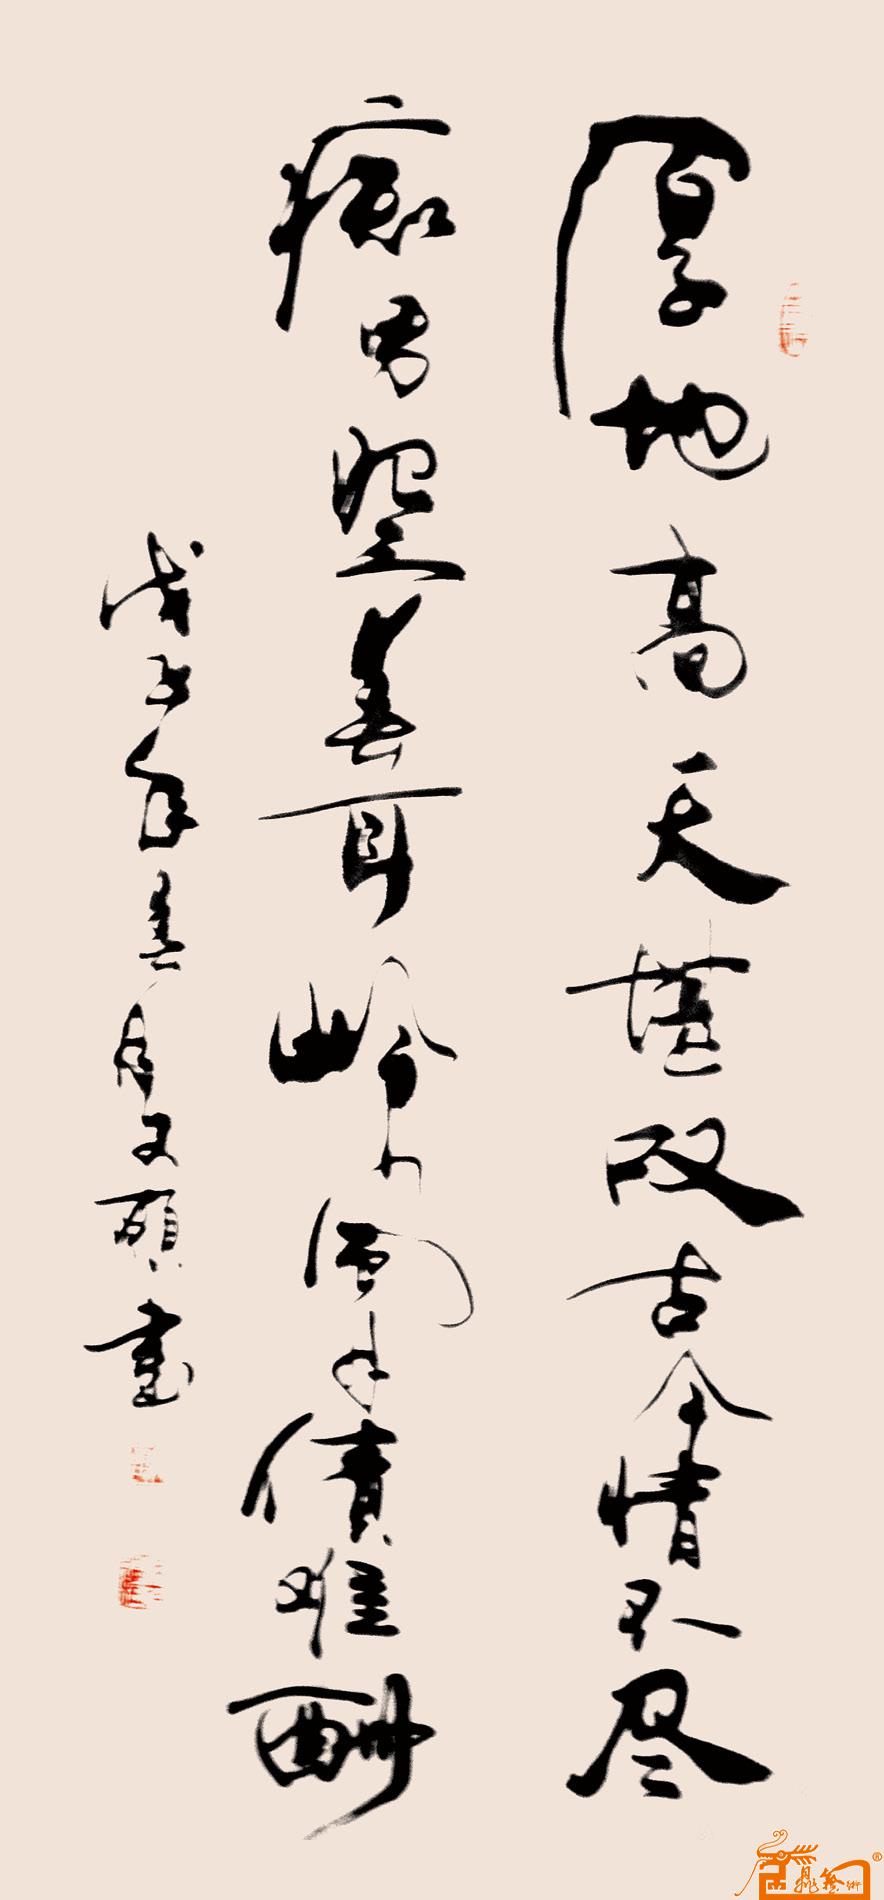 厚地高天堪叹古今情不尽
痴男怨女可怜風月債难酬
戊子年春月文碩書